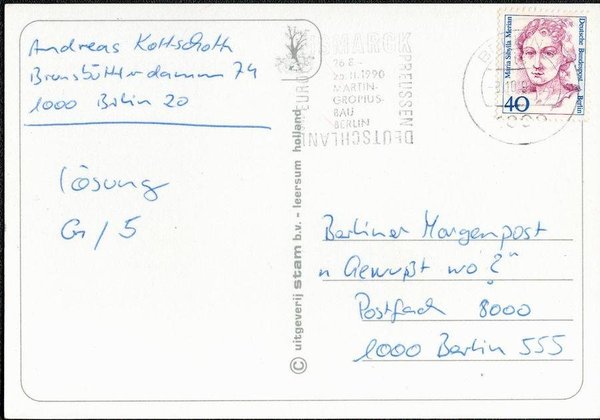 Andreas Kottschoth
Brunsbütteldamm 74
1000 Berlin 20
Lösung
G / 5
© uitgeverij stam b.v. - leersum holland
MARCK
PREUSSEN
DEUTSCHLAND
26.8.-
25.11.1990
MARTIN-
GROPIUS-
BAU
BERLIN
Maria Sibylla Merian
Deutsche Bundespost Berlin
40
Berliner Morgenpost
"Gewußt wo?"
Postfach 8000
1000 Berlin 555